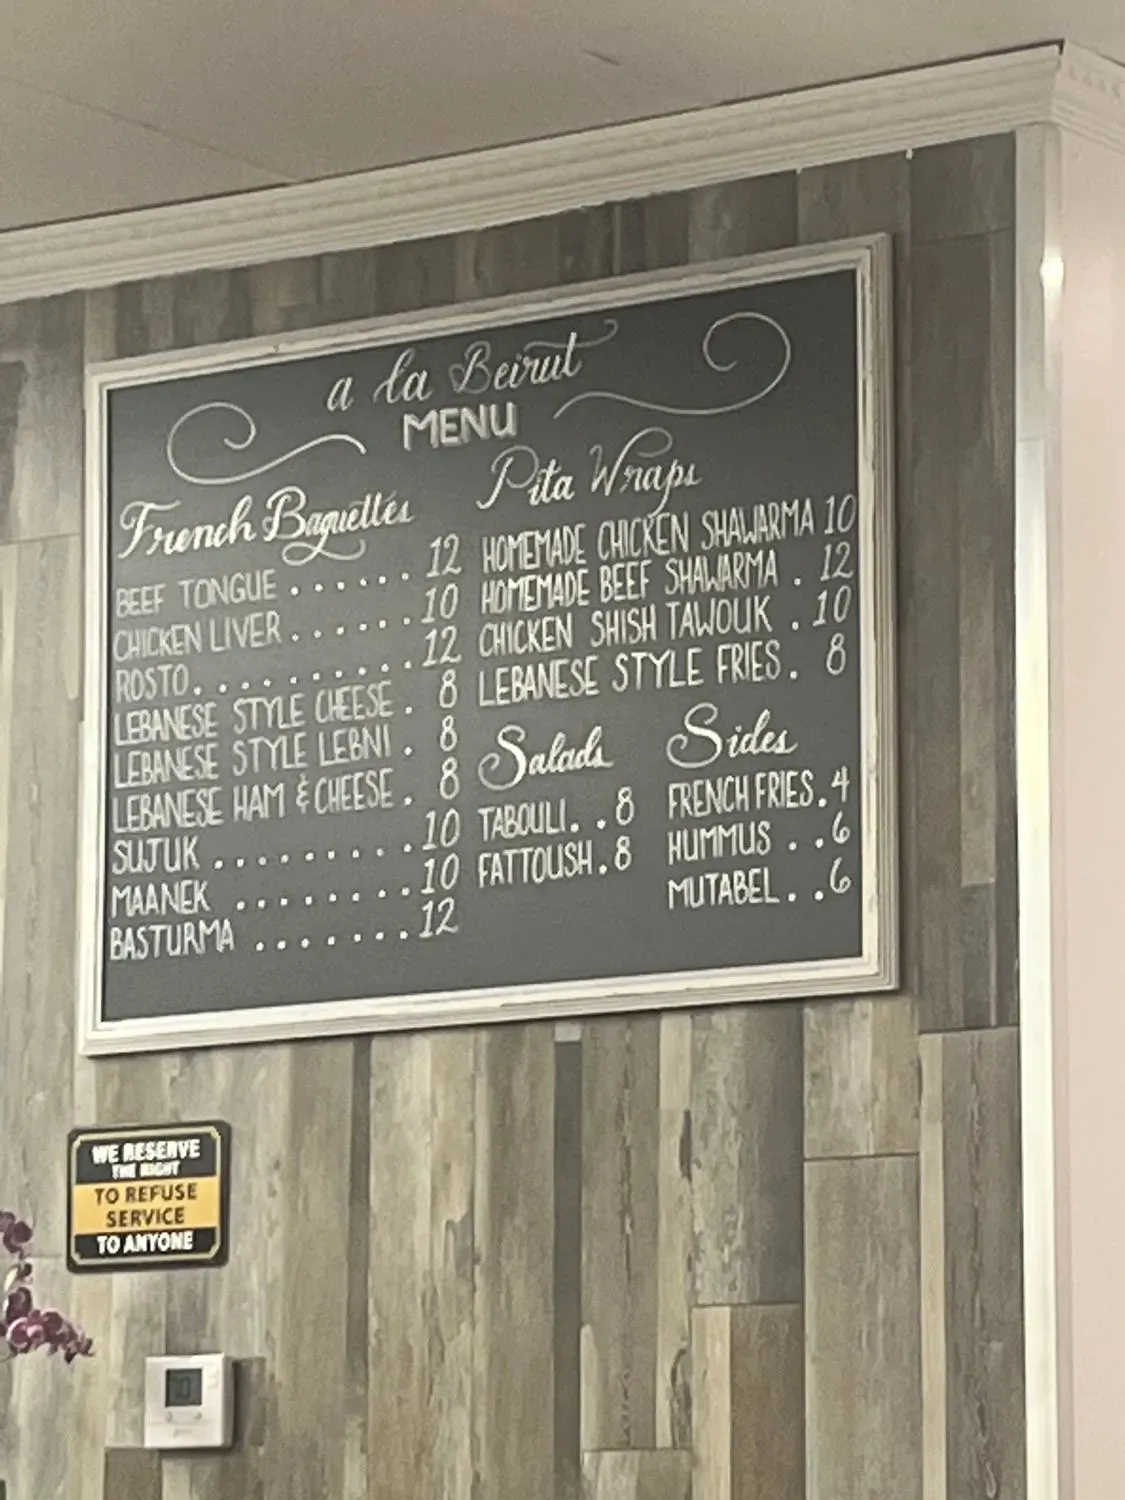 a la Beirut
MENU
French Baguettes
BEEF TONGUE . . . . . . 12
CHICKEN LIVER . . . . . . 10
ROSTO . . . . . . . . . . . 12
LEBANESE STYLE CHEESE . 8
LEBANESE STYLE LEBNI . 8
LEBANESE HAM & CHEESE . 8
SUJUK . . . . . . . . . . 10
MAANEK . . . . . . . . 10
BASTURMA . . . . . . . 12
Pita Wraps
HOMEMADE CHICKEN SHAWARMA 10
HOMEMADE BEEF SHAWARMA . 12
CHICKEN SHISH TAWOUK . 10
LEBANESE STYLE FRIES . 8
Salads
TABOULI . . 8
FATTOUSH . 8
Sides
FRENCH FRIES . 4
HUMMUS . . 6
MUTABEL . . 6
WE RESERVE
THE RIGHT
TO REFUSE
SERVICE
TO ANYONE